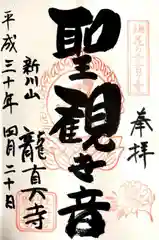 奉拝
聖観世音
新川山
龍真寺
平成三十年四月二十日